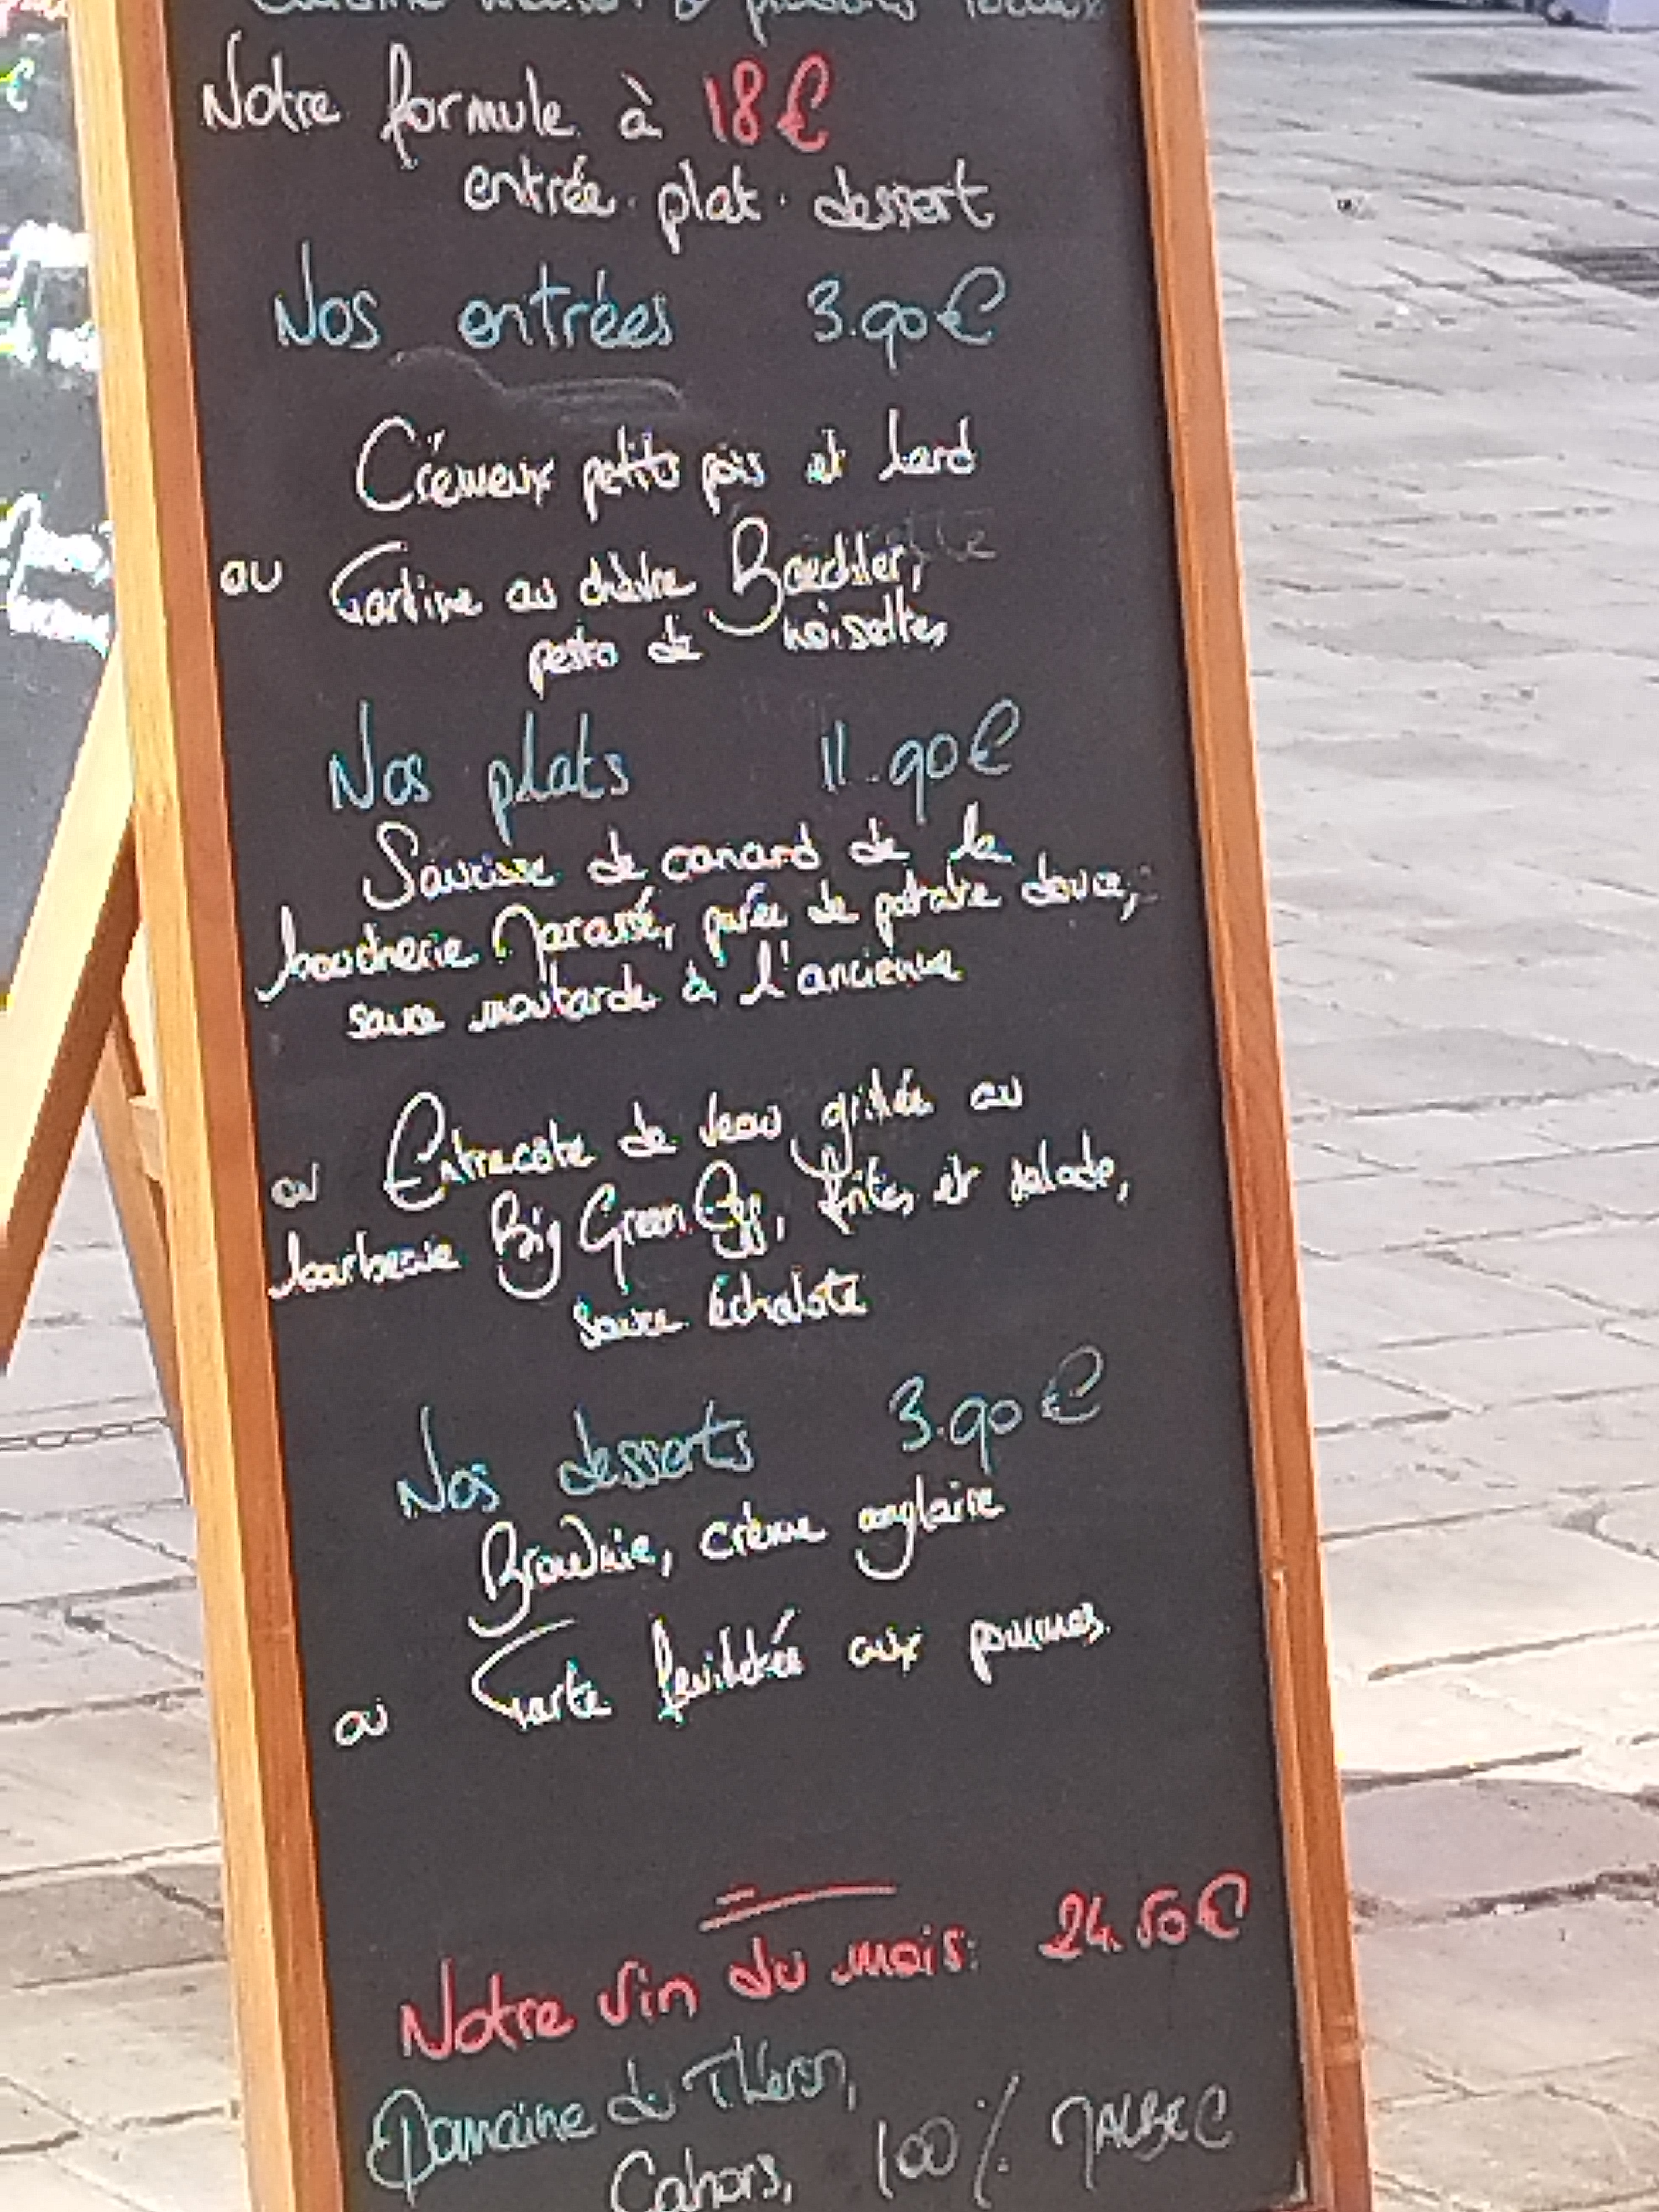 Notre formule à 18€
entrée · plat · dessert
Nos entrées 3.90€
Crémeux petits pois et lard
ou Tartine au chèvre Baechler,
pesto de noisettes
Nos plats 11.90€
Saucisse de canard de la
boucherie Marassé, purée de patate douce,
sauce moutarde à l'ancienne
ou Entrecôte de veau grillée au
barbecue Big Green Egg, frites et salade,
sauce échalote
Nos desserts 3.90€
Brownie, crème anglaise
ou Tarte feuilletée aux pommes.
Notre vin du mois: 24.50€
Domaine du Théron,
Cahors, 100% MALBEC